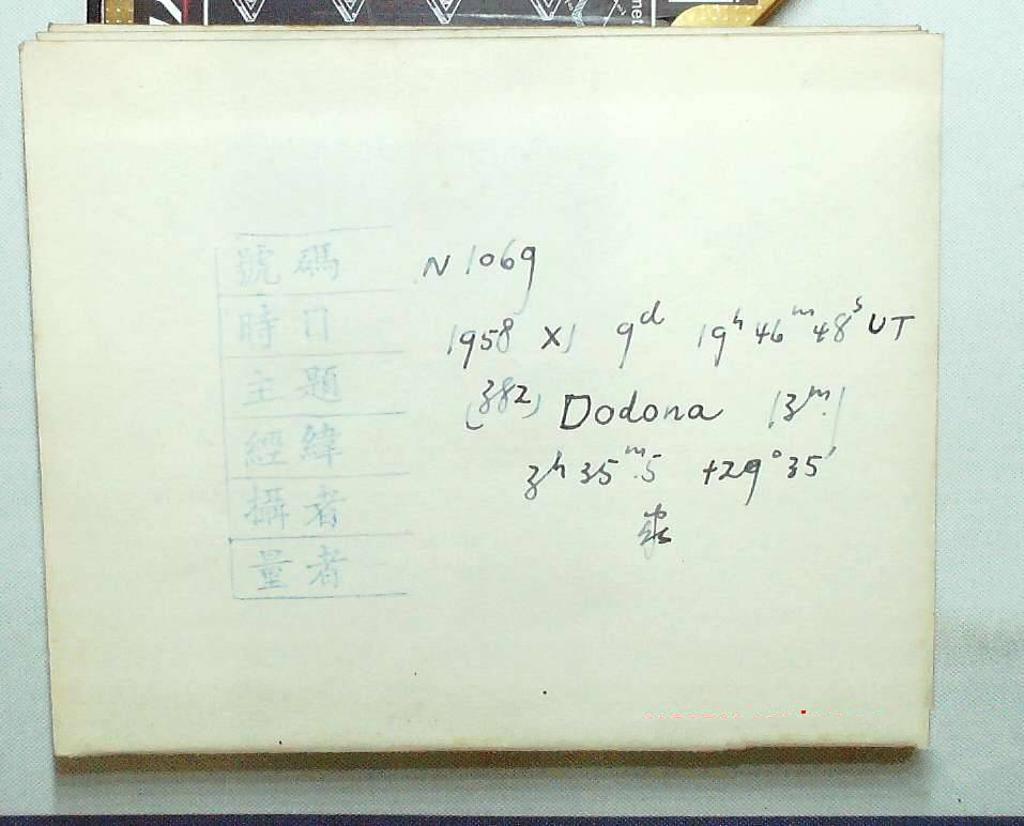 號碼 N 1069
時日 1958 XI 9ᵈ 19ʰ 46ᵐ 48ˢ UT
主題 (382) Dodona 13ᵐ.1
經緯 3ʰ 35ᵐ.5 +29° 35'
攝者
量者